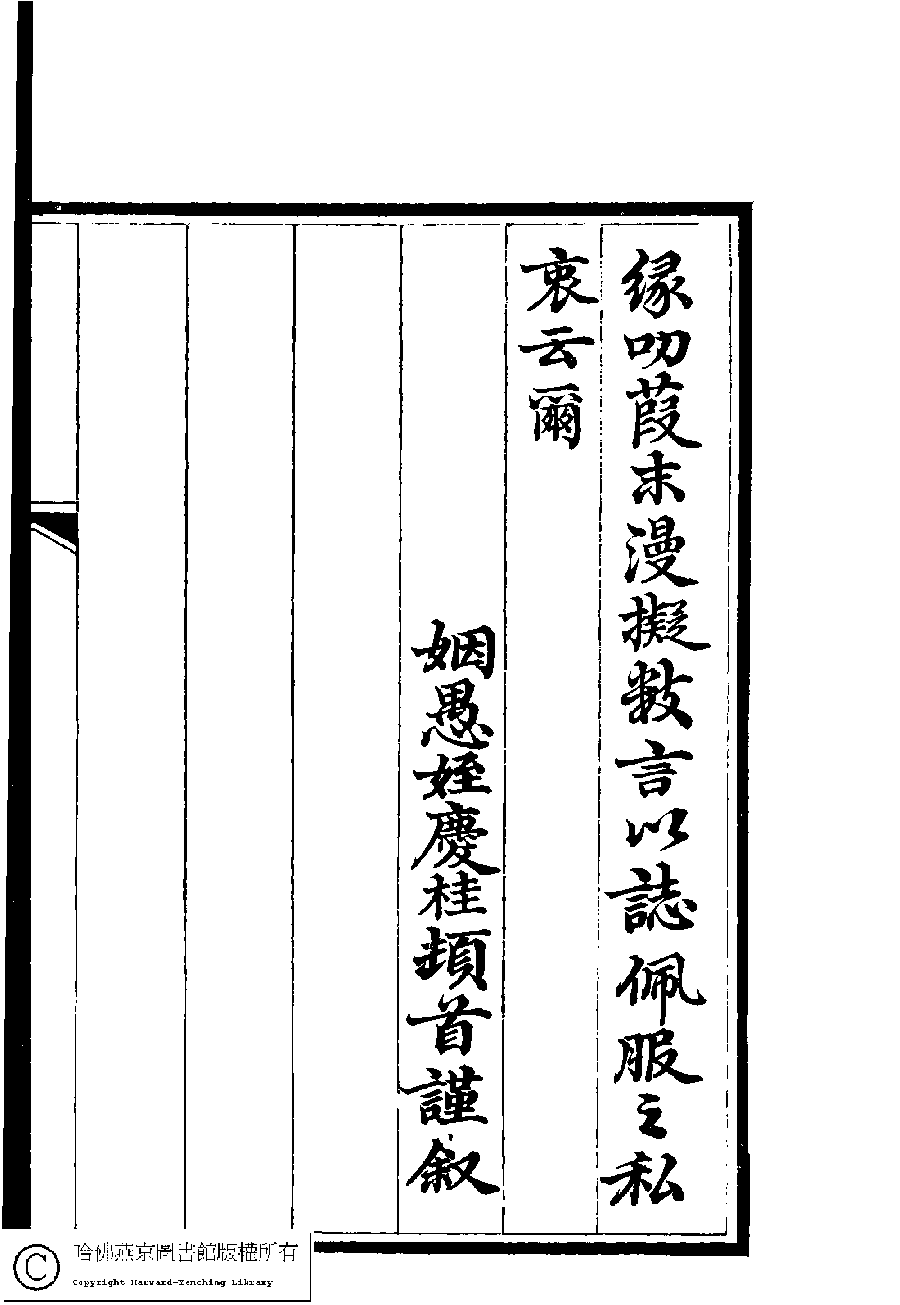 緣叨葭末漫擬數言以誌佩服之私
衷云爾
姻愚姪慶桂頓首謹叙
哈佛燕京圖書館版權所有
Copyright Harvard-Yenching Library